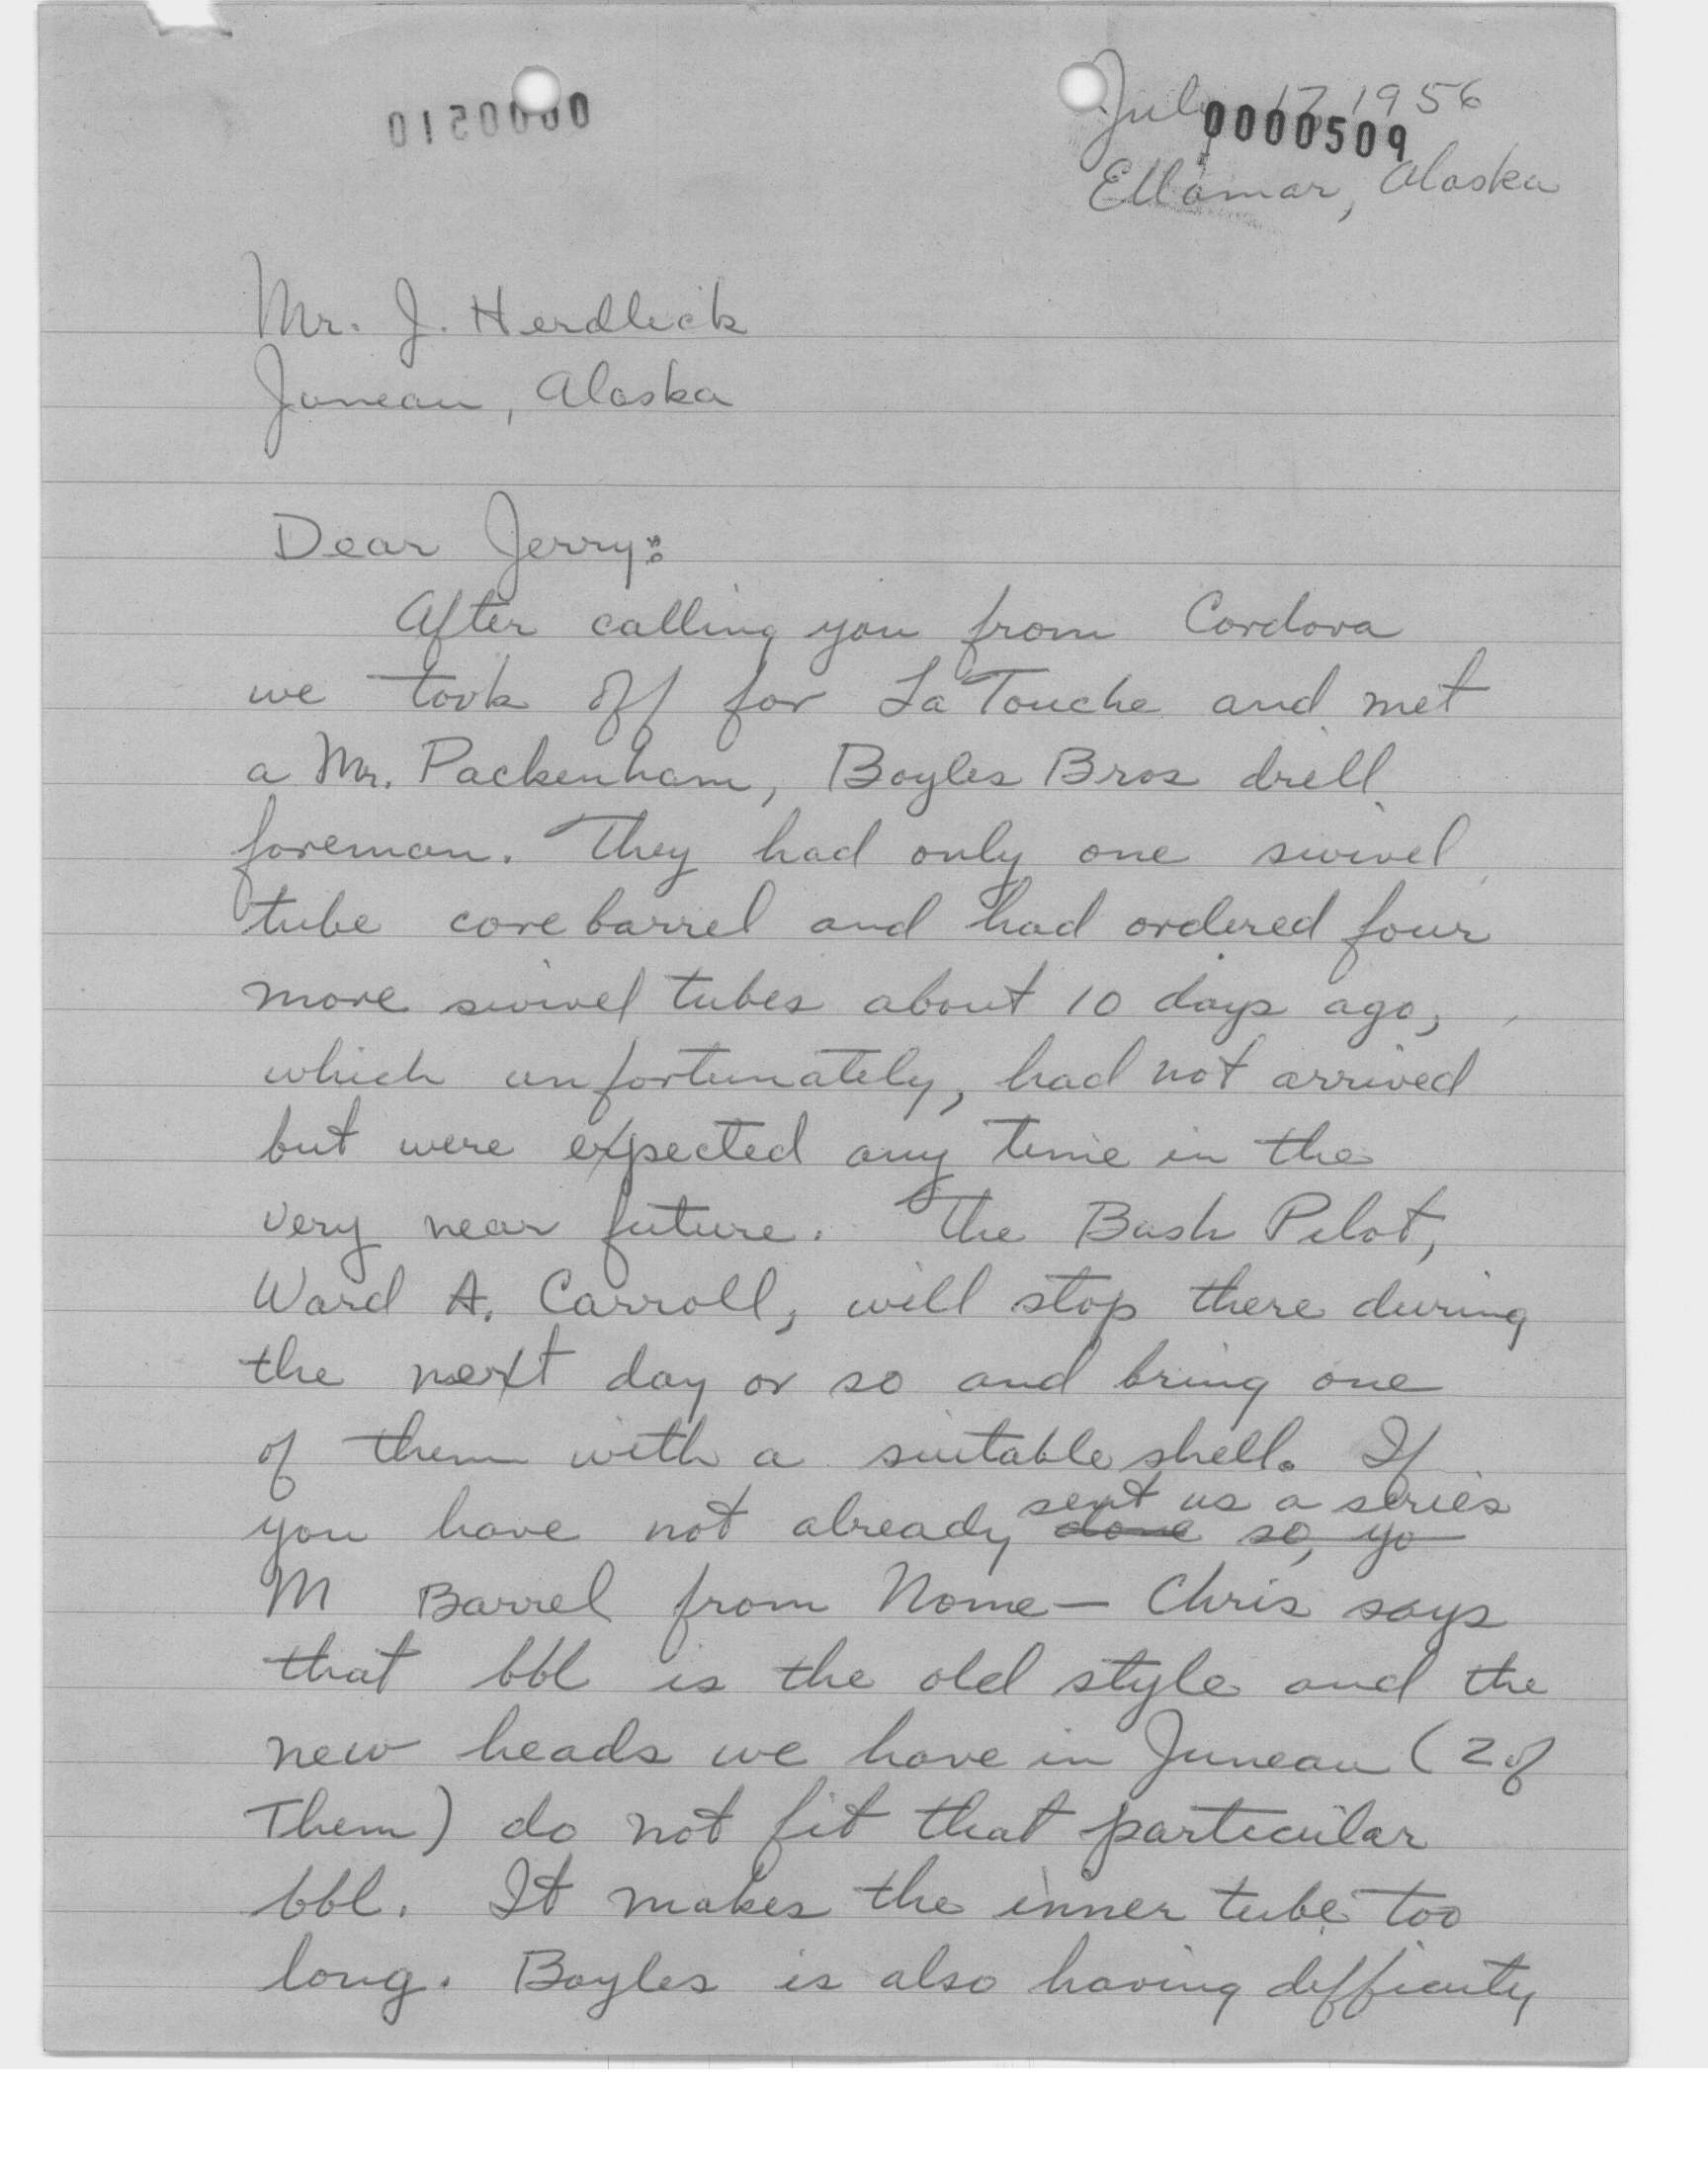 July 17, 1956
0000509
0000510
Ellamar, Alaska
Mr. J. Herdlick
Juneau, Alaska
Dear Jerry:
After calling you from Cordova
we took off for LaTouche and met
a Mr. Packenham, Boyles Bros drill
foreman. They had only one swivel
tube core barrel and had ordered four
more swivel tubes about 10 days ago,
which unfortunately, had not arrived
but were expected any time in the
very near future. The Bush Pilot,
Ward A. Carroll, will stop there during
the next day or so and bring one
of them with a suitable shell. If
sent us a series
you have not already done so, yo
M Barrel from Nome — Chris says
that bbl is the old style and the
new heads we have in Juneau (2 of
Them) do not fit that particular
bbl. It makes the inner tube too
long. Boyles is also having difficulty